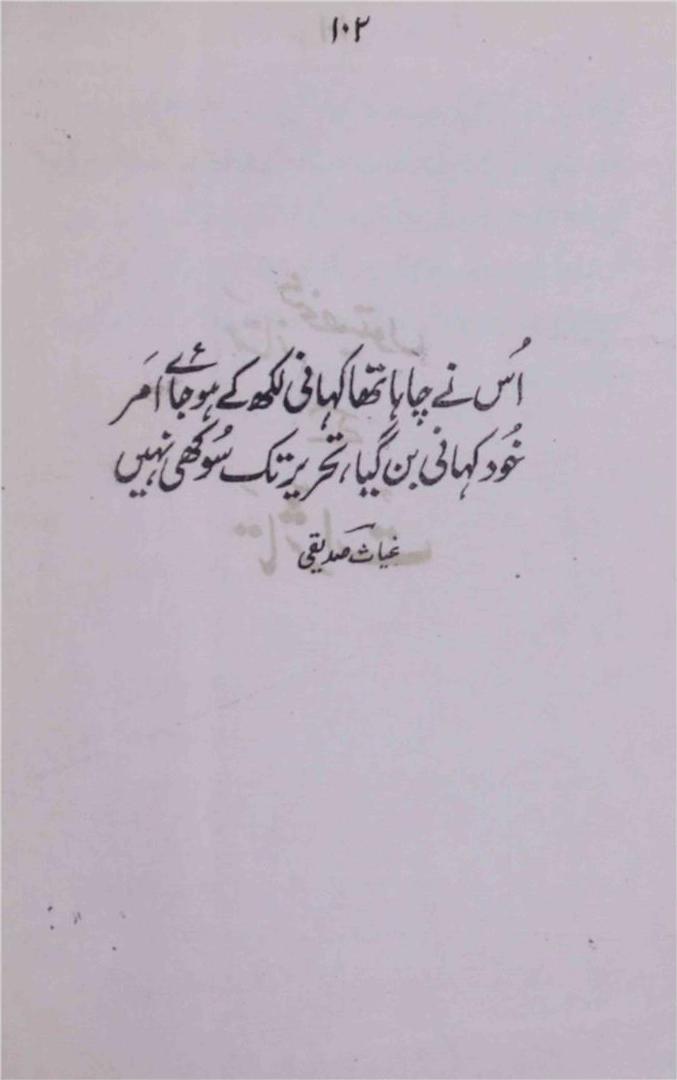 ۱۰۲
اُس نے چاہا تھا کہانی لکھ کے ہو جائے اَمَر
خُود کہانی بن گیا، تحریر تک سُوکھی نہیں
غیاث صدیقی